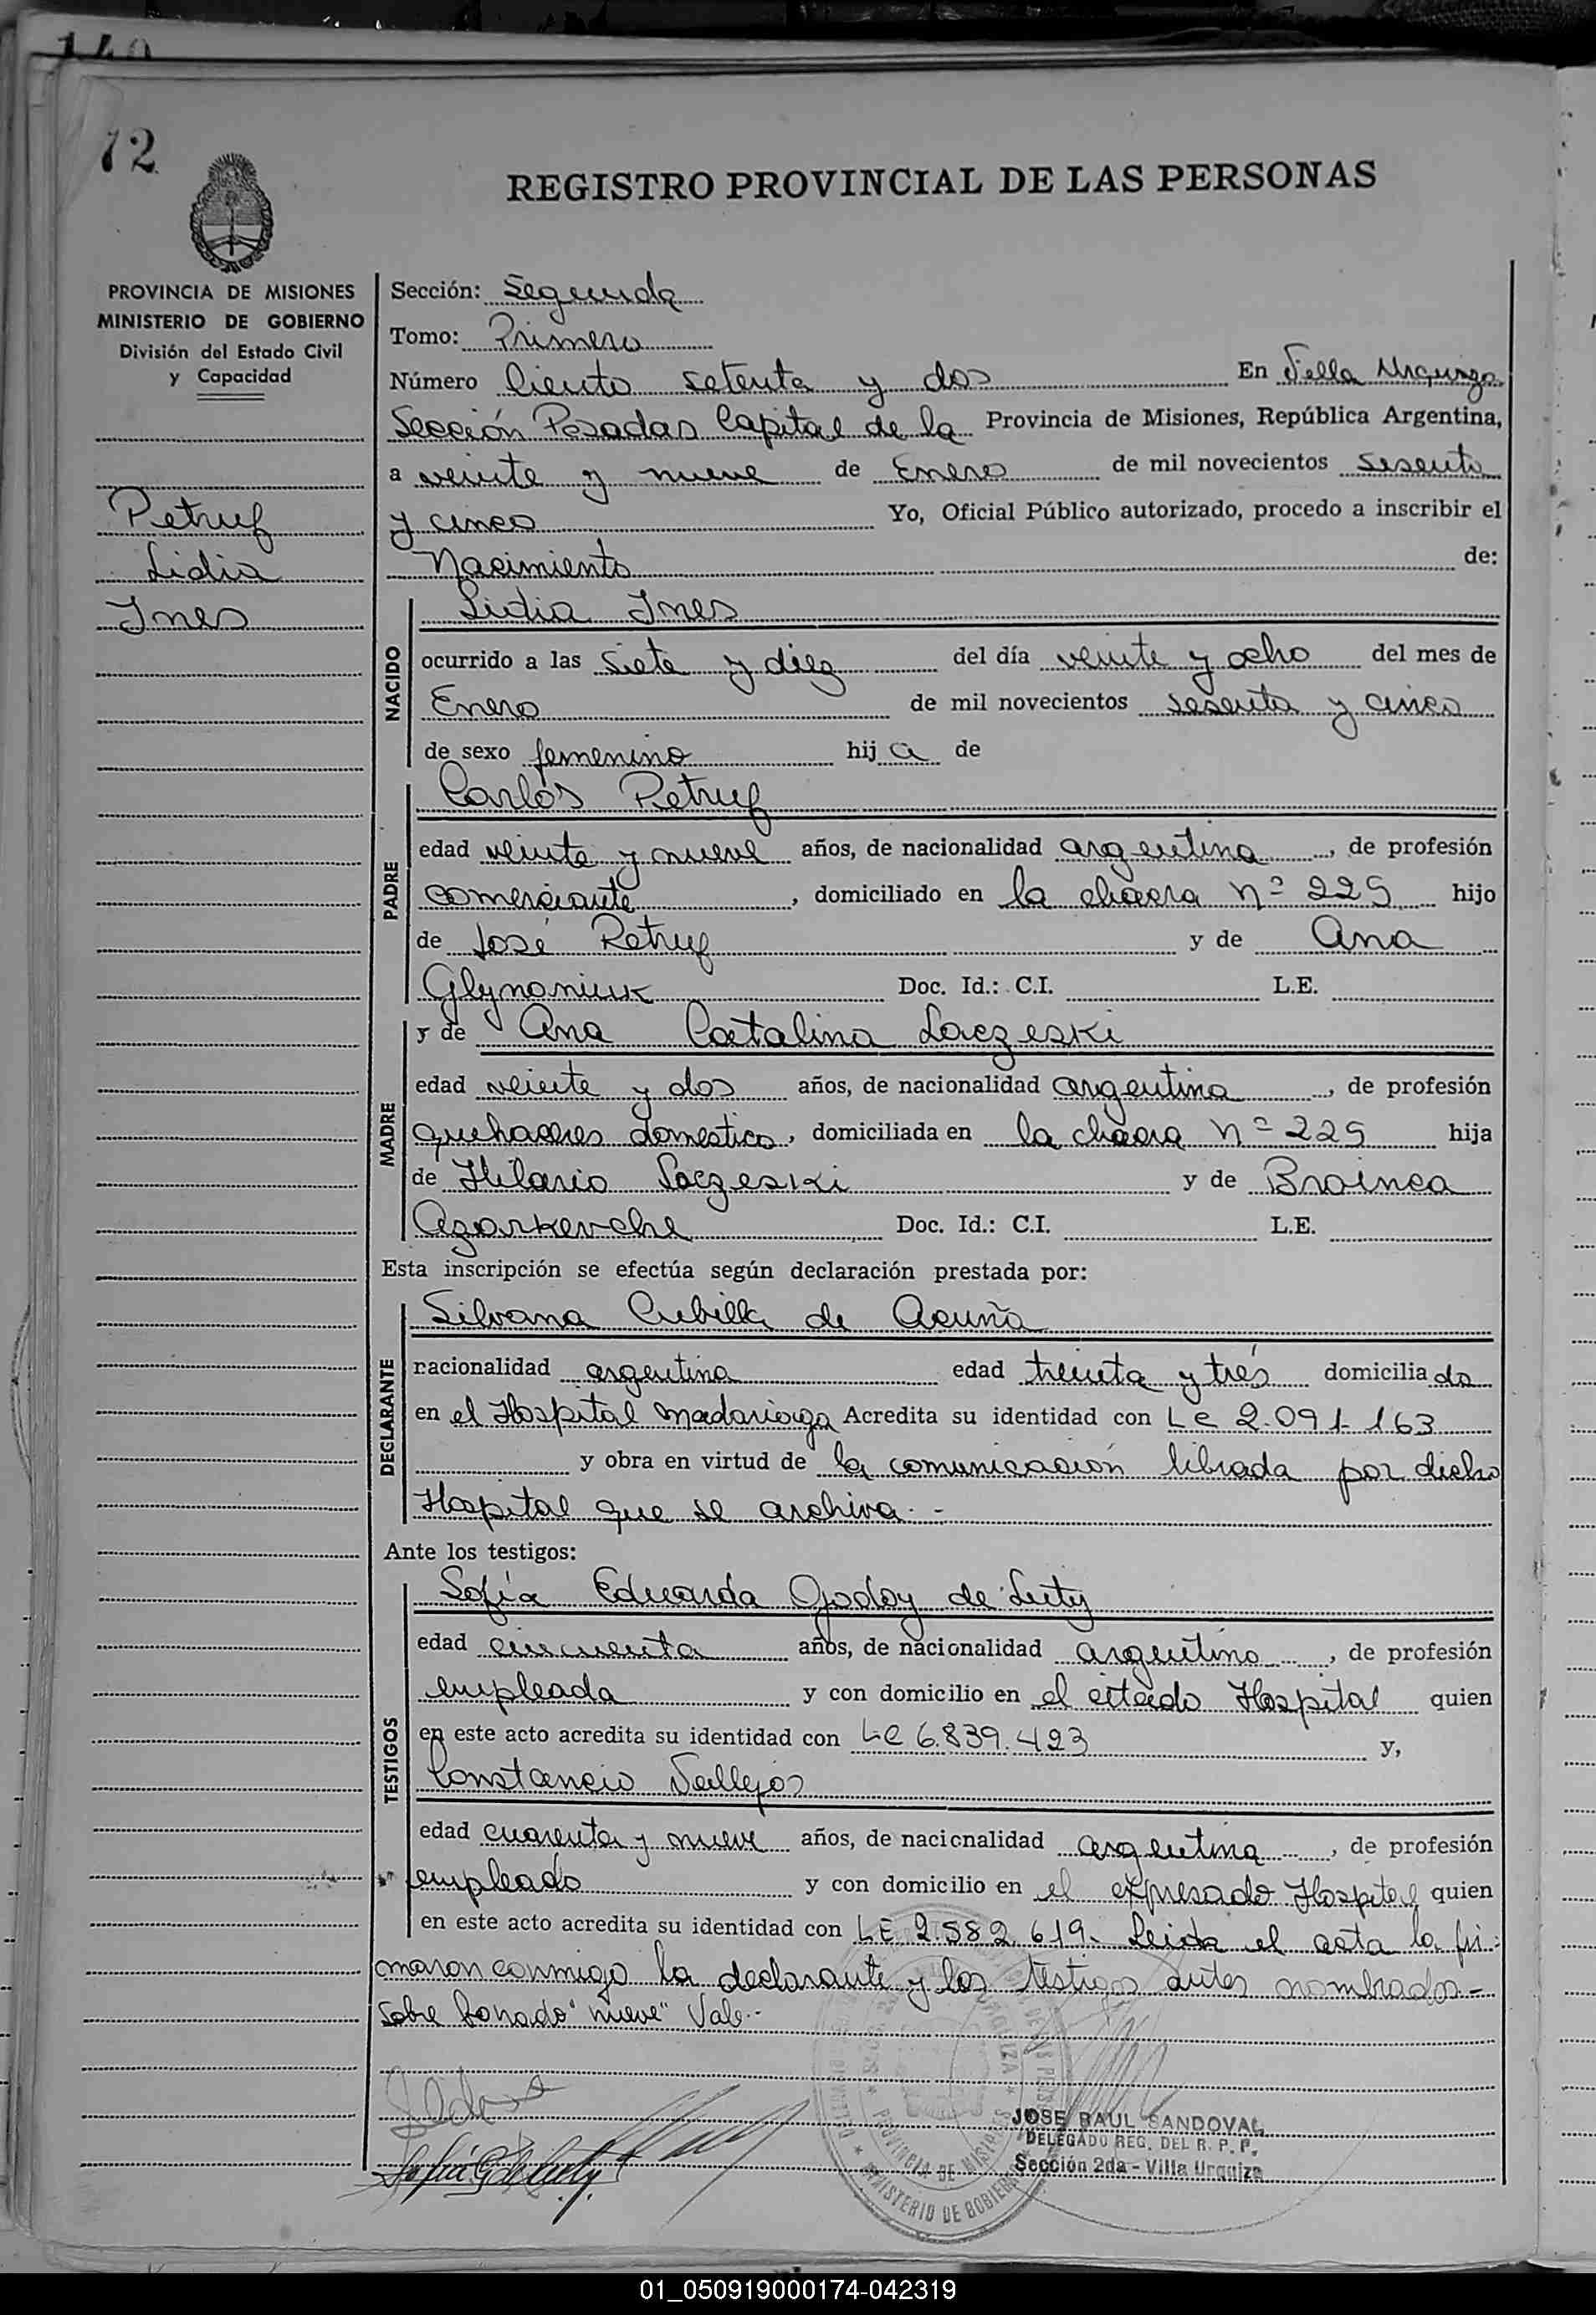 72
REGISTRO PROVINCIAL DE LAS PERSONAS
PROVINCIA DE MISIONES
MINISTERIO DE GOBIERNO
División del Estado Civil
y Capacidad
Petruf
Lidia
Ines
Sección: Segunda
Tomo: Primero
Número Ciento setenta y dos En Villa Urquiza
Sección Posadas Capital de la Provincia de Misiones, República Argentina,
a veinte y nueve de Enero de mil novecientos sesenta
y cinco Yo, Oficial Público autorizado, procedo a inscribir el
Nacimiento de:
NACIDO
Lidia Ines
ocurrido a las siete y diez del día veinte y ocho del mes de
Enero de mil novecientos sesenta y cinco
de sexo femenino hij a de
PADRE
Carlos Petruf
edad veinte y nueve años, de nacionalidad argentina, de profesión
comerciante, domiciliado en la chacra nº 225 hijo
de José Petruf y de Ana
Glynaniuk Doc. Id.: C.I. L.E.
MADRE
y de Ana Catalina Laczeski
edad veinte y dos años, de nacionalidad argentina, de profesión
quehaceres domestico, domiciliada en la chacra nº 225 hija
de Hilario Laczeski y de Broinea
Azarkevche Doc. Id.: C.I. L.E.
Esta inscripción se efectúa según declaración prestada por:
DECLARANTE
Silvana Cubilla de Acuña
nacionalidad argentina edad treinta y trés domicilia da
en el Hospital Madariaga Acredita su identidad con LC 2.091.163
y obra en virtud de la comunicación librada por dicho
Hospital que se archiva.-
Ante los testigos:
TESTIGOS
Sofía Eduarda Godoy de Luty
edad cincuenta años, de nacionalidad argentina, de profesión
empleada y con domicilio en el citado Hospital quien
en este acto acredita su identidad con LC 6.839.423 y,
Constancio Vallejos
edad cuarenta y nueve años, de nacicnalidad argentina, de profesión
empleado y con domicilio en el expresado Hospital quien
en este acto acredita su identidad con LE 2.582.619.- Leida el acta la fir-
maron conmigo la declarante y los testigos antes nombrados.-
Sobre borrado "nueve" Vale.-
JOSE RAUL SANDOVAL
DELEGADO REG. DEL R. P. P.
Sección 2da - Villa Urquiza
PROVINCIA DE MISIONES
MINISTERIO DE GOBIERNO
01_050919000174-042319